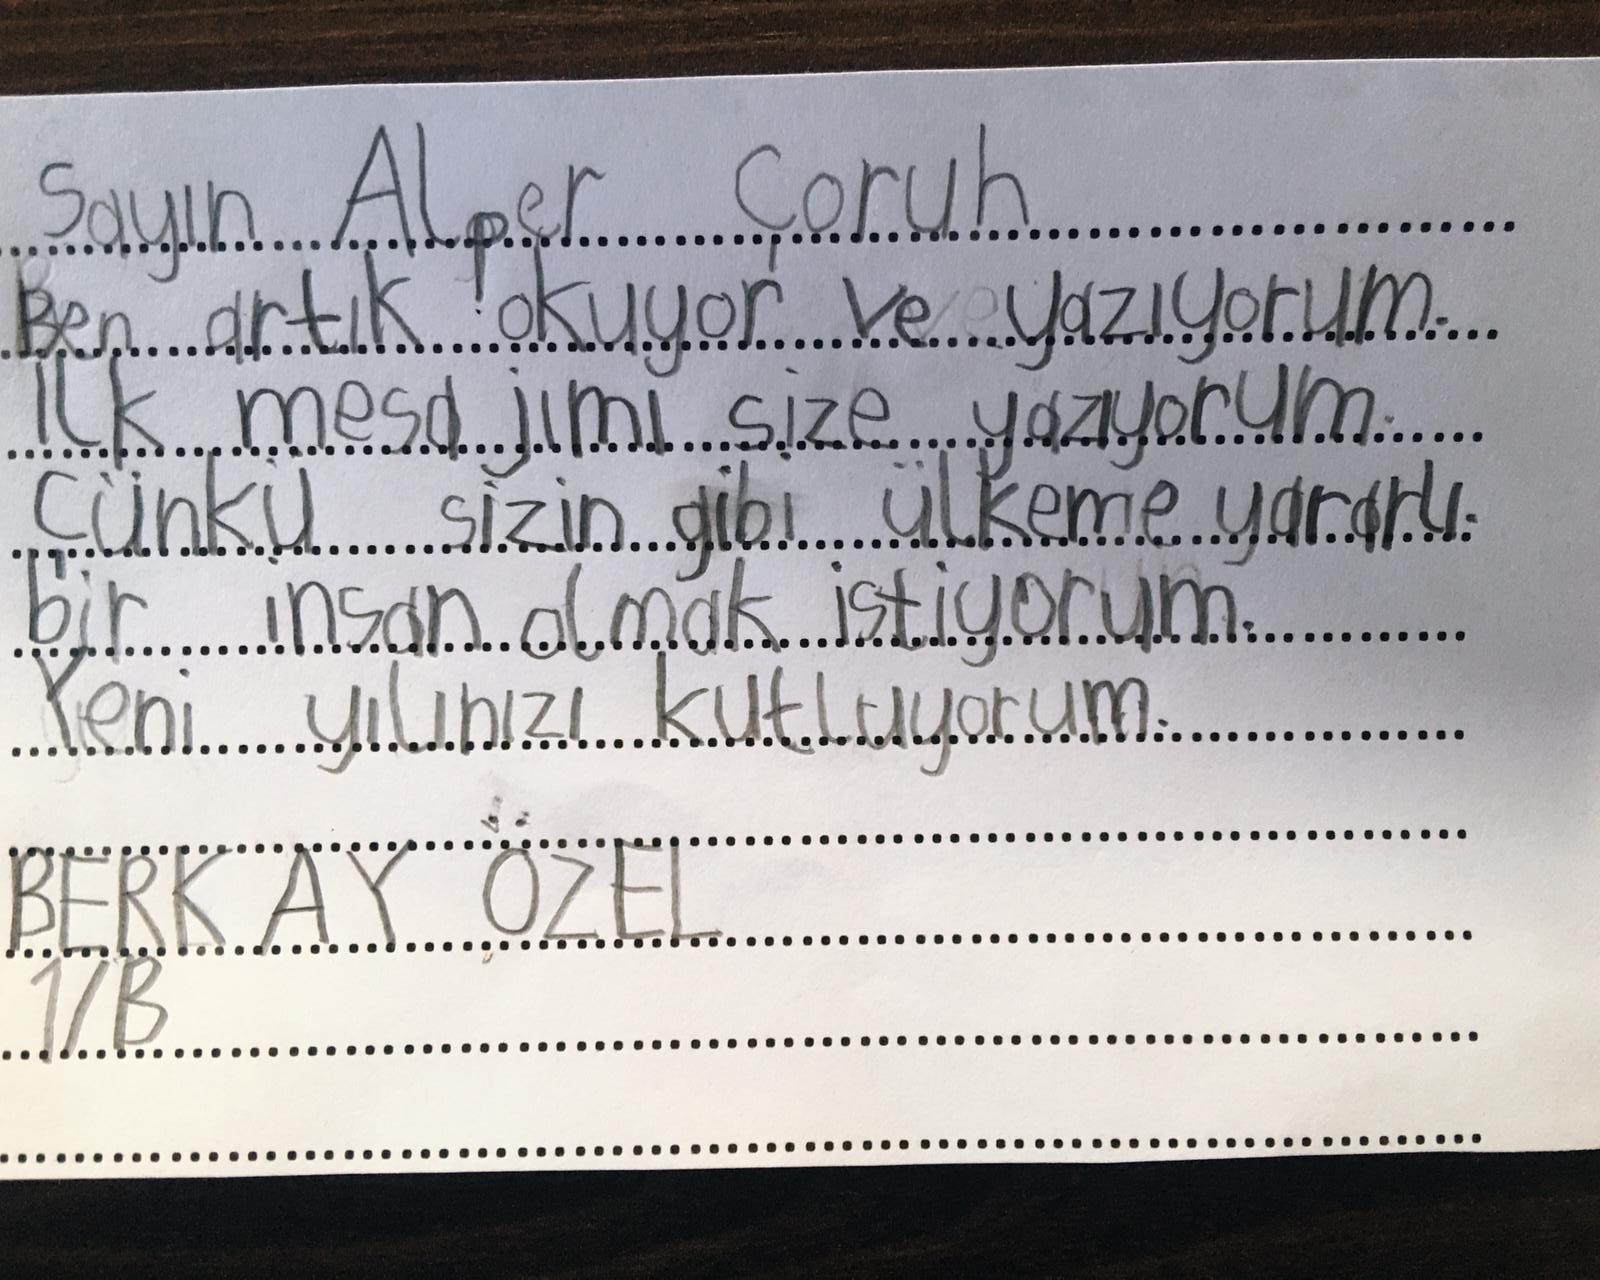 Sayın Alper Çoruh
Ben artık okuyor ve yazıyorum.
İlk mesajımı size yazıyorum.
Çünkü sizin gibi ülkeme yararlı.
bir insan olmak istiyorum.
Yeni yılınızı kutluyorum.
BERKAY ÖZEL
1/B